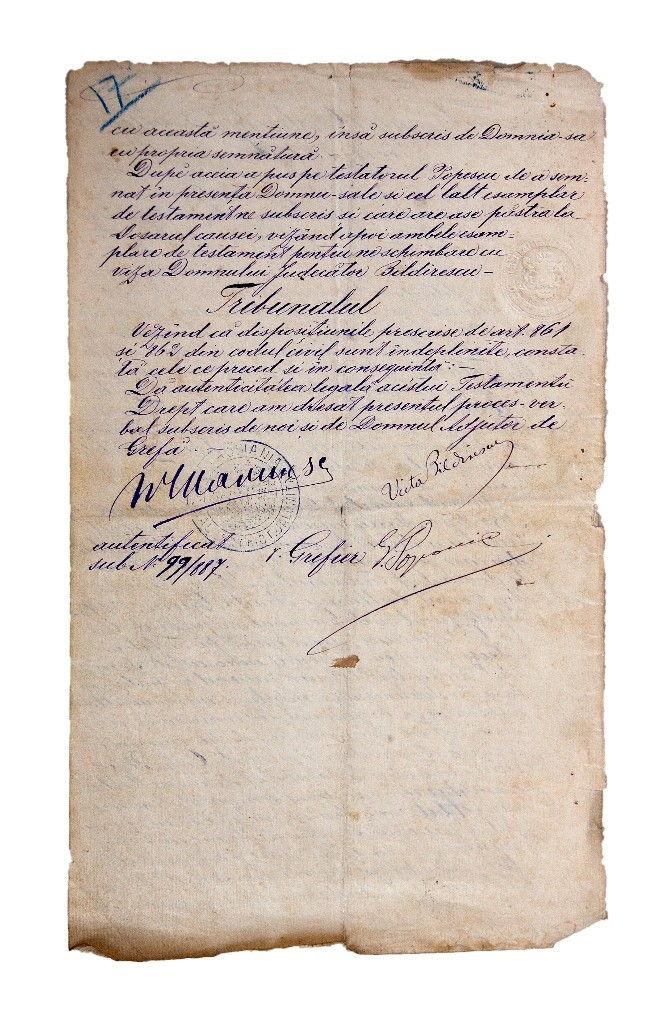 17
cu această mentiune, însă subscris de Domnia-sa
cu propria semnătură –
Dupĕ aceia a pus pe testatorul Popescu de a sem-
nat în presența Domnu-sale si cel lalt esamplar
de testament ne subscris si care are a se păstra la
Dosarul causei, vizând apoi ambele esam-
plare de testament pentru ne schimbare cu
viza Domnului Judecător Bildirescu –
Tribunalul
Vĕzind că dispozitiunile prescrise de art. 861
si 862 din codul civil sunt îndeplinite, consta-
tă cele ce preced si in consequintă: –
Dă autenticitatea legală acestui Testamentu
Drept care am dresat presentul proces-ver-
bal subscris de noi si de Domnul Adjutor de
Grefă
Victa Bildirescu
autentificat
sub No 99/887.
Grefier